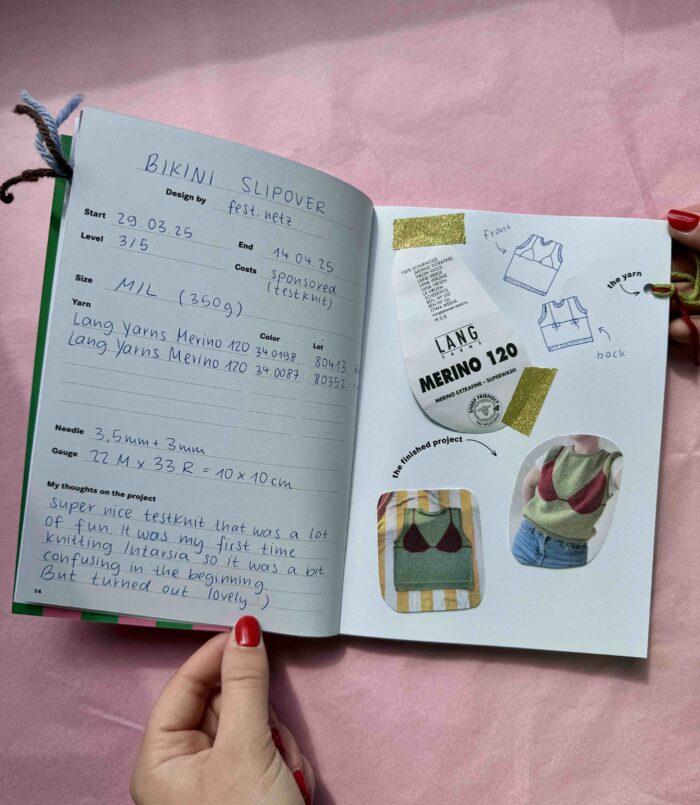 BIKINI SLIPOVER
Design by fest.netz
Start 29.03.25
End 14.04.25
Level 3/5
Costs sponsored
(testknit)
Size M/L (350g)
Yarn
Color
Lot
Lang Yarns Merino 120 340198 80413
Lang Yarns Merino 120 34.0087 80352
Needle 3,5mm + 3mm
Gauge 22 M x 33 R = 10 x 10cm
My thoughts on the project
super nice testknit that was a lot
of fun. It was my first time
knitting Intarsia so it was a bit
confusing in the beginning.
But turned out lovely :)
14
front
back
the yarn
LANG
YARNS
MERINO 120
MERINO EXTRAFINE – SUPERWASH
SHEEP FRIENDLY
NO MULESING
the finished project